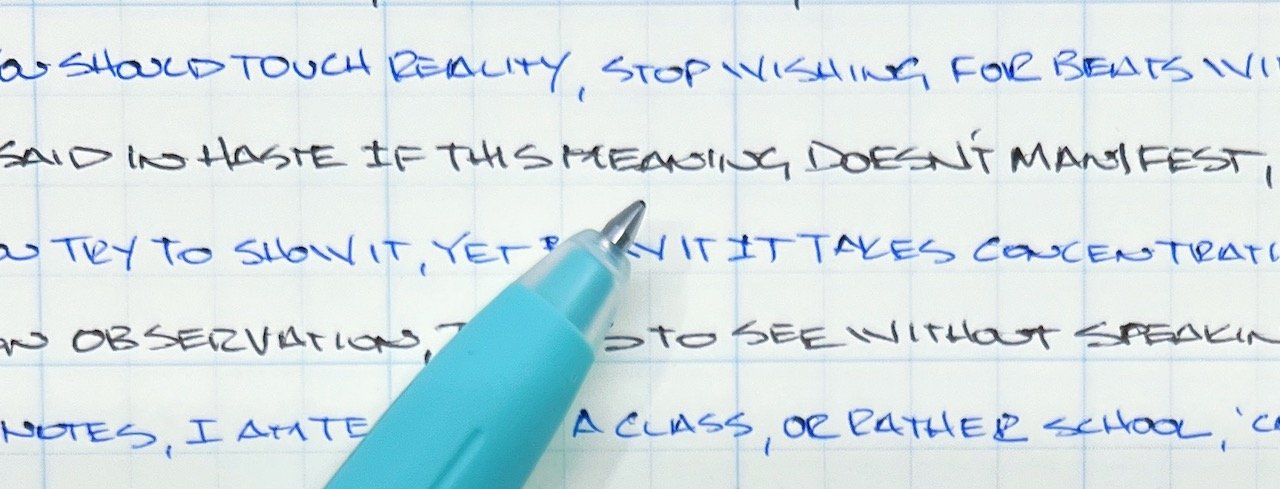 SHOULD TOUCH REALITY, STOP WISHING FOR BEATS
SAID IN HASTE IF THIS MEANING DOESN'T MANIFEST,
TRY TO SHOW IT, YET IT IT TAKES
OBSERVATION, TO SEE WITHOUT
NOTES, I AM A CLASS, OR RATHER SCHOOL,